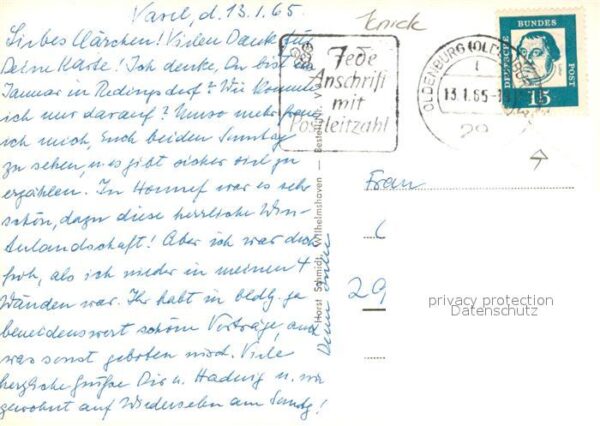 Varel, d. 13.1.65.
Liebes Clärchen! Vielen Dank für
Deine Karte! Ich denke, Du bist im
Januar in ? Wie komme
ich nur darauf? Umso mehr freue
ich mich, Euch beiden Sonntag
zu sehen, u. es gibt sicher viel zu
erzählen. In Honnef war es sehr
schön, dazu diese herrliche Win-
terlandschaft! Aber ich war doch
froh, als ich wieder in meinen 4
Wänden war. Ihr habt in Oldbg. ja
beneidenswert schöne Vorträge, auch
was sonst geboten wird. Viele
herzliche Grüße Dir u. Hedwig u. wie
gewohnt auf Wiedersehen am Sonntg!
Deine
Knick
Jede
Anschrift
mit
Postleitzahl
OLDENBURG (OLDB)
1
13.1.65
29
DEUTSCHE BUNDES POST
15
Horst Schmidt, Wilhelmshaven — Bestell-Nr. Va
Frau
29
privacy protection
Datenschutz